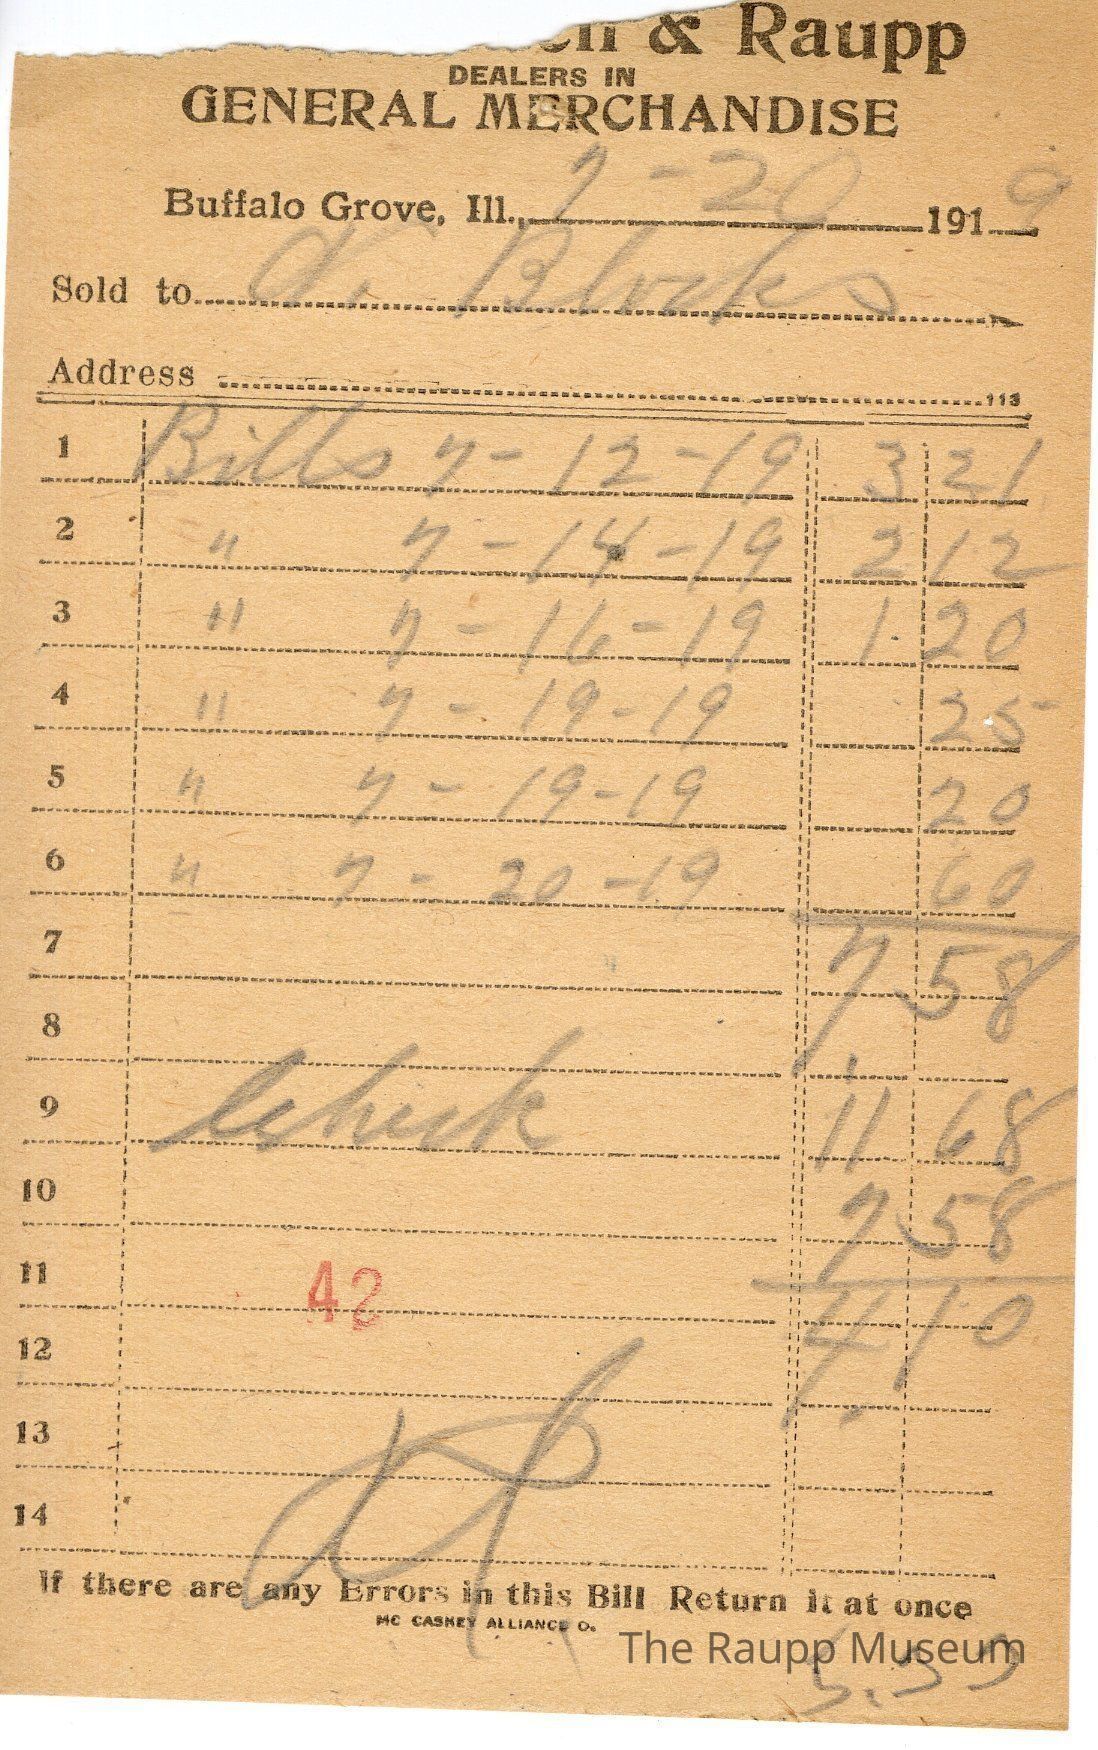 & Raupp
DEALERS IN
GENERAL MERCHANDISE
Buffalo Grove, Ill., 7-20 1919
Sold to
Address 113
1 Bills 7-12-19 3 21
2 " 7-14-19 2 12
3 " 7-16-19 1 20
4 " 7-19-19 25
5 " 7-19-19 20
6 " 7-20-19 60
7 7 58
8
9 Check 11 68
10 7 58
11 42 4 10
12
13
14
If there are any Errors in this Bill Return It at once
MC CASKEY ALLIANCE O.
The Raupp Museum